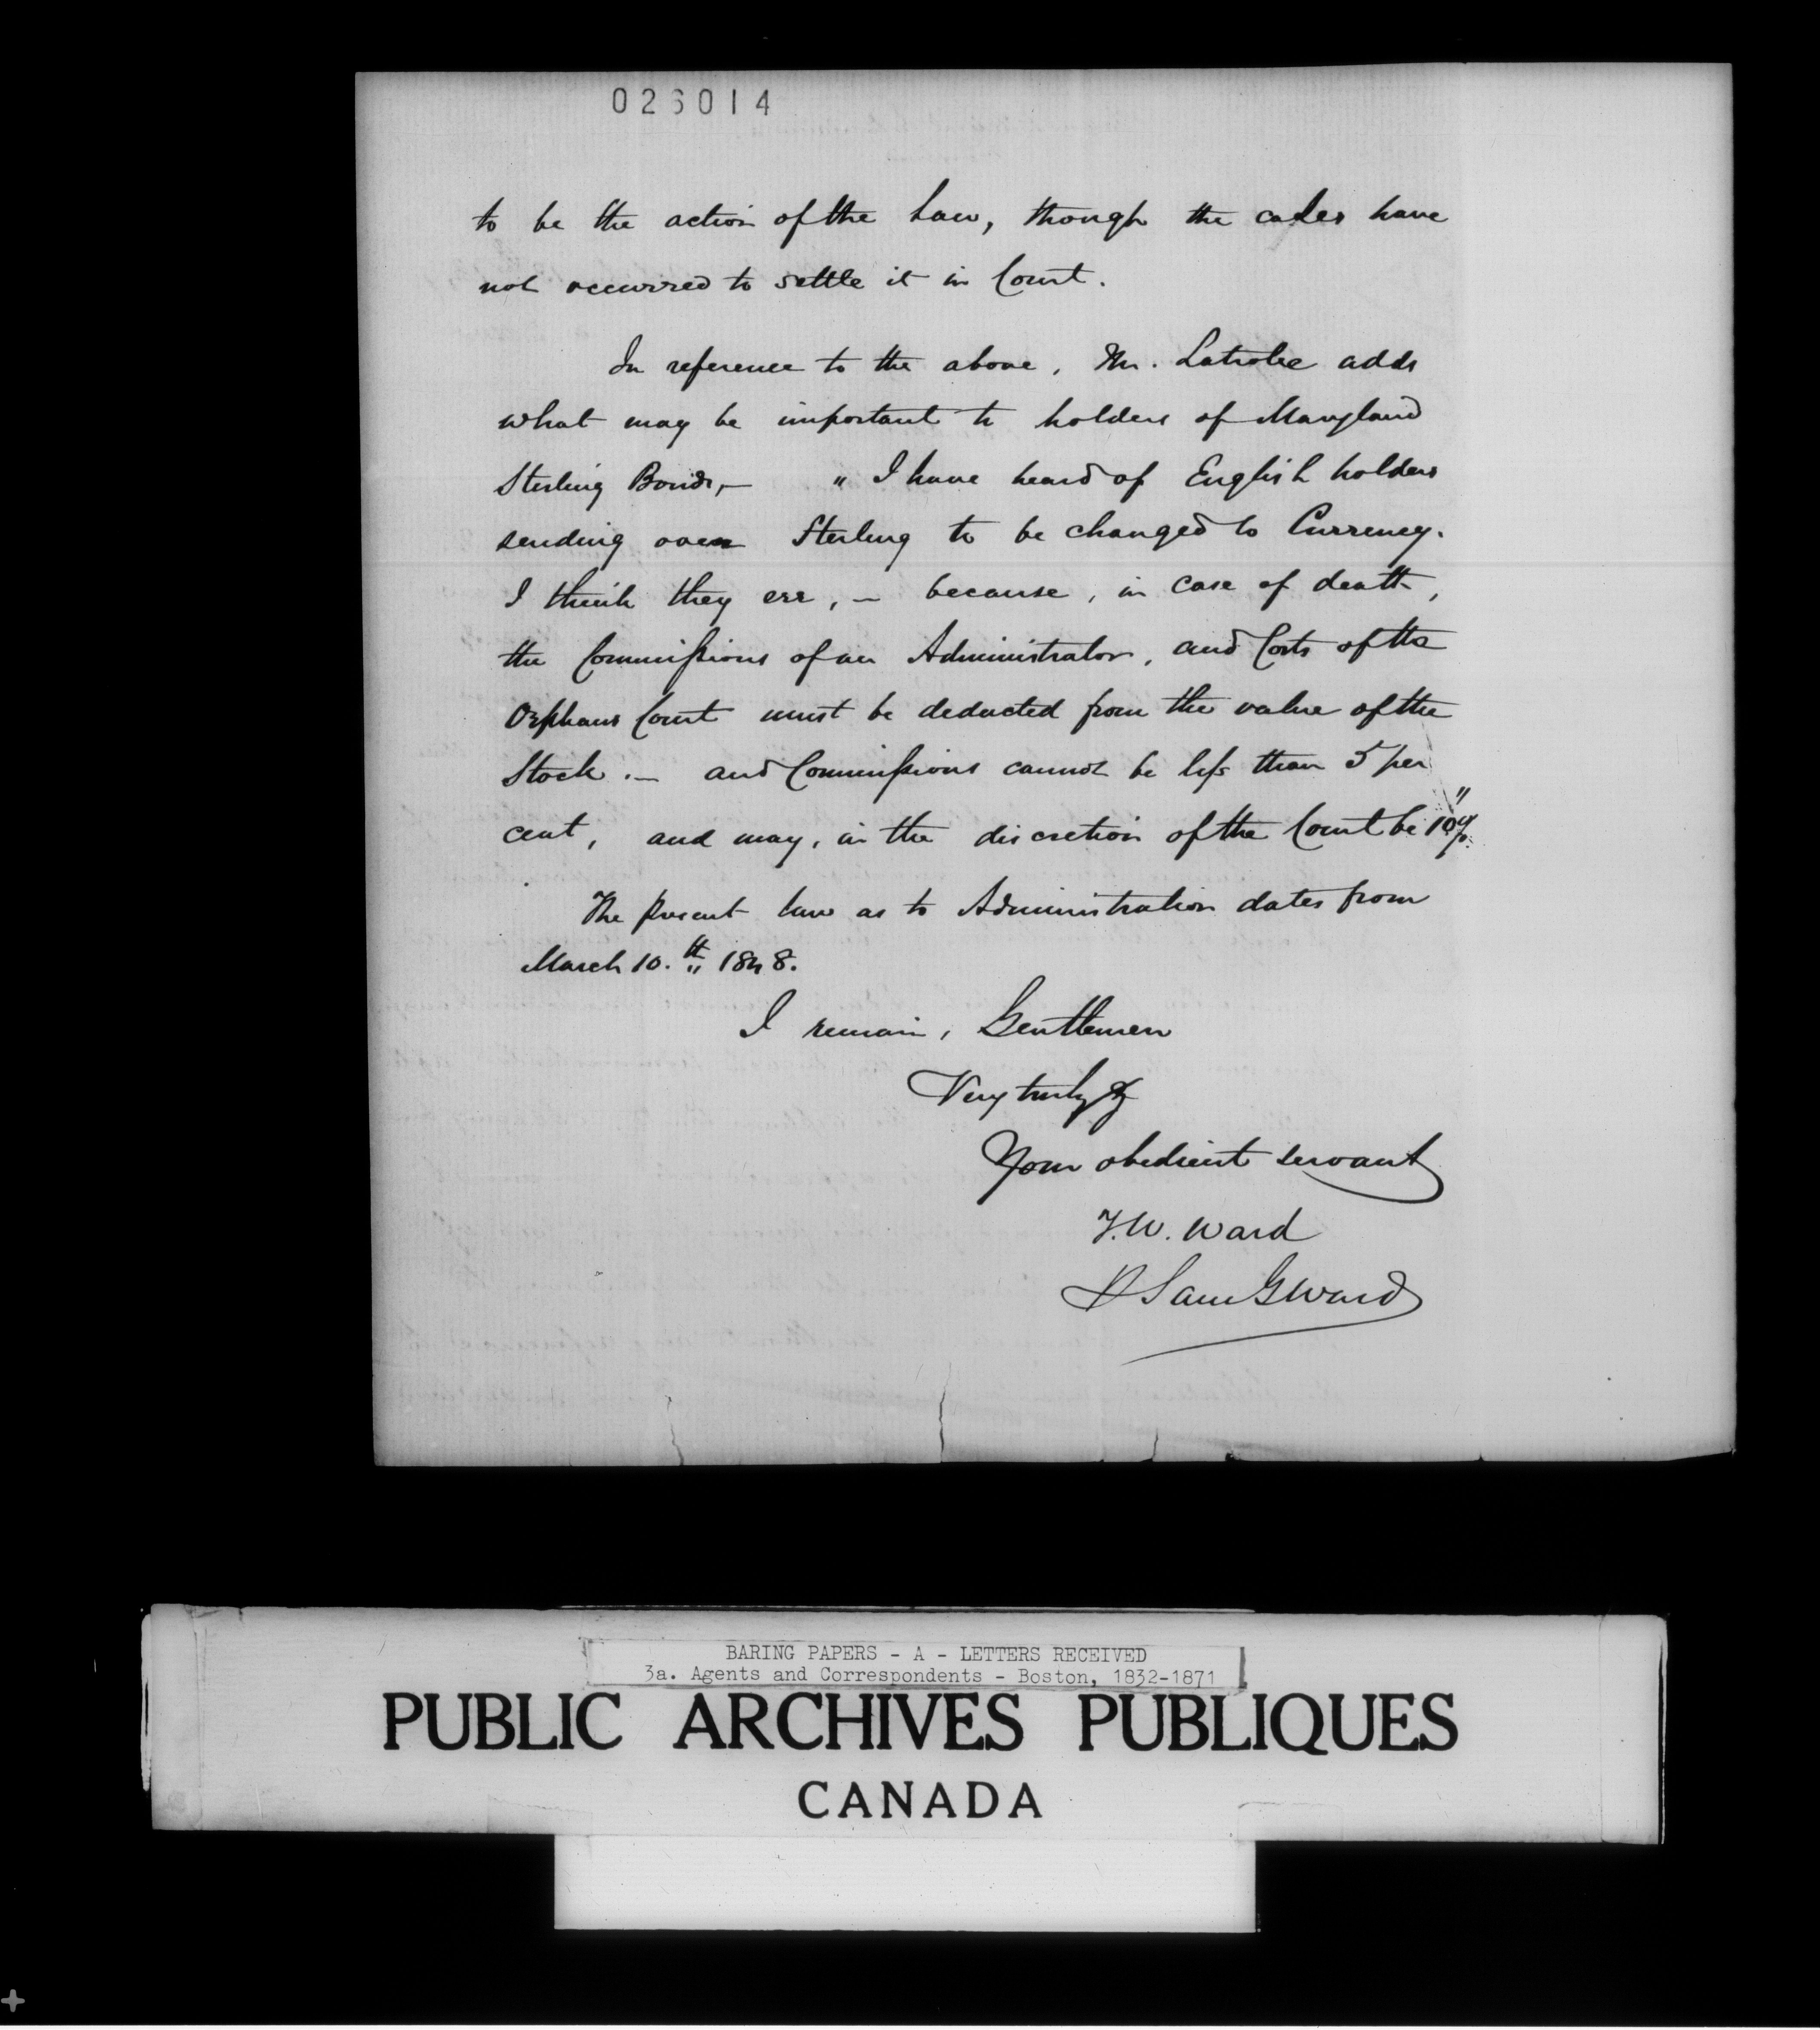 026014
to be the action of the Law, though the cases have
not occurred to settle it in Court.
In reference to the above, Mr. Latrobe adds
what may be important to holders of Maryland
Sterling Bonds,— "I have heard of English holders
sending over Sterling to be changed to Currency.
I think they err, — because, in case of death,
the Commissions of an Administrator, and Costs of the
Orphans Court must be deducted from the value of the
Stock. — and Commissions cannot be less than 5 per
cent, and may, in the discretion of the Court be 10%."
The present law as to Administration dates from
March 10.th 1848.
I remain, Gentlemen
Very truly
Your obedient servant
T.W. Ward
P Sam G Ward
BARING PAPERS - A - LETTERS RECEIVED
3a. Agents and Correspondents - Boston, 1832-1871
PUBLIC ARCHIVES PUBLIQUES
CANADA